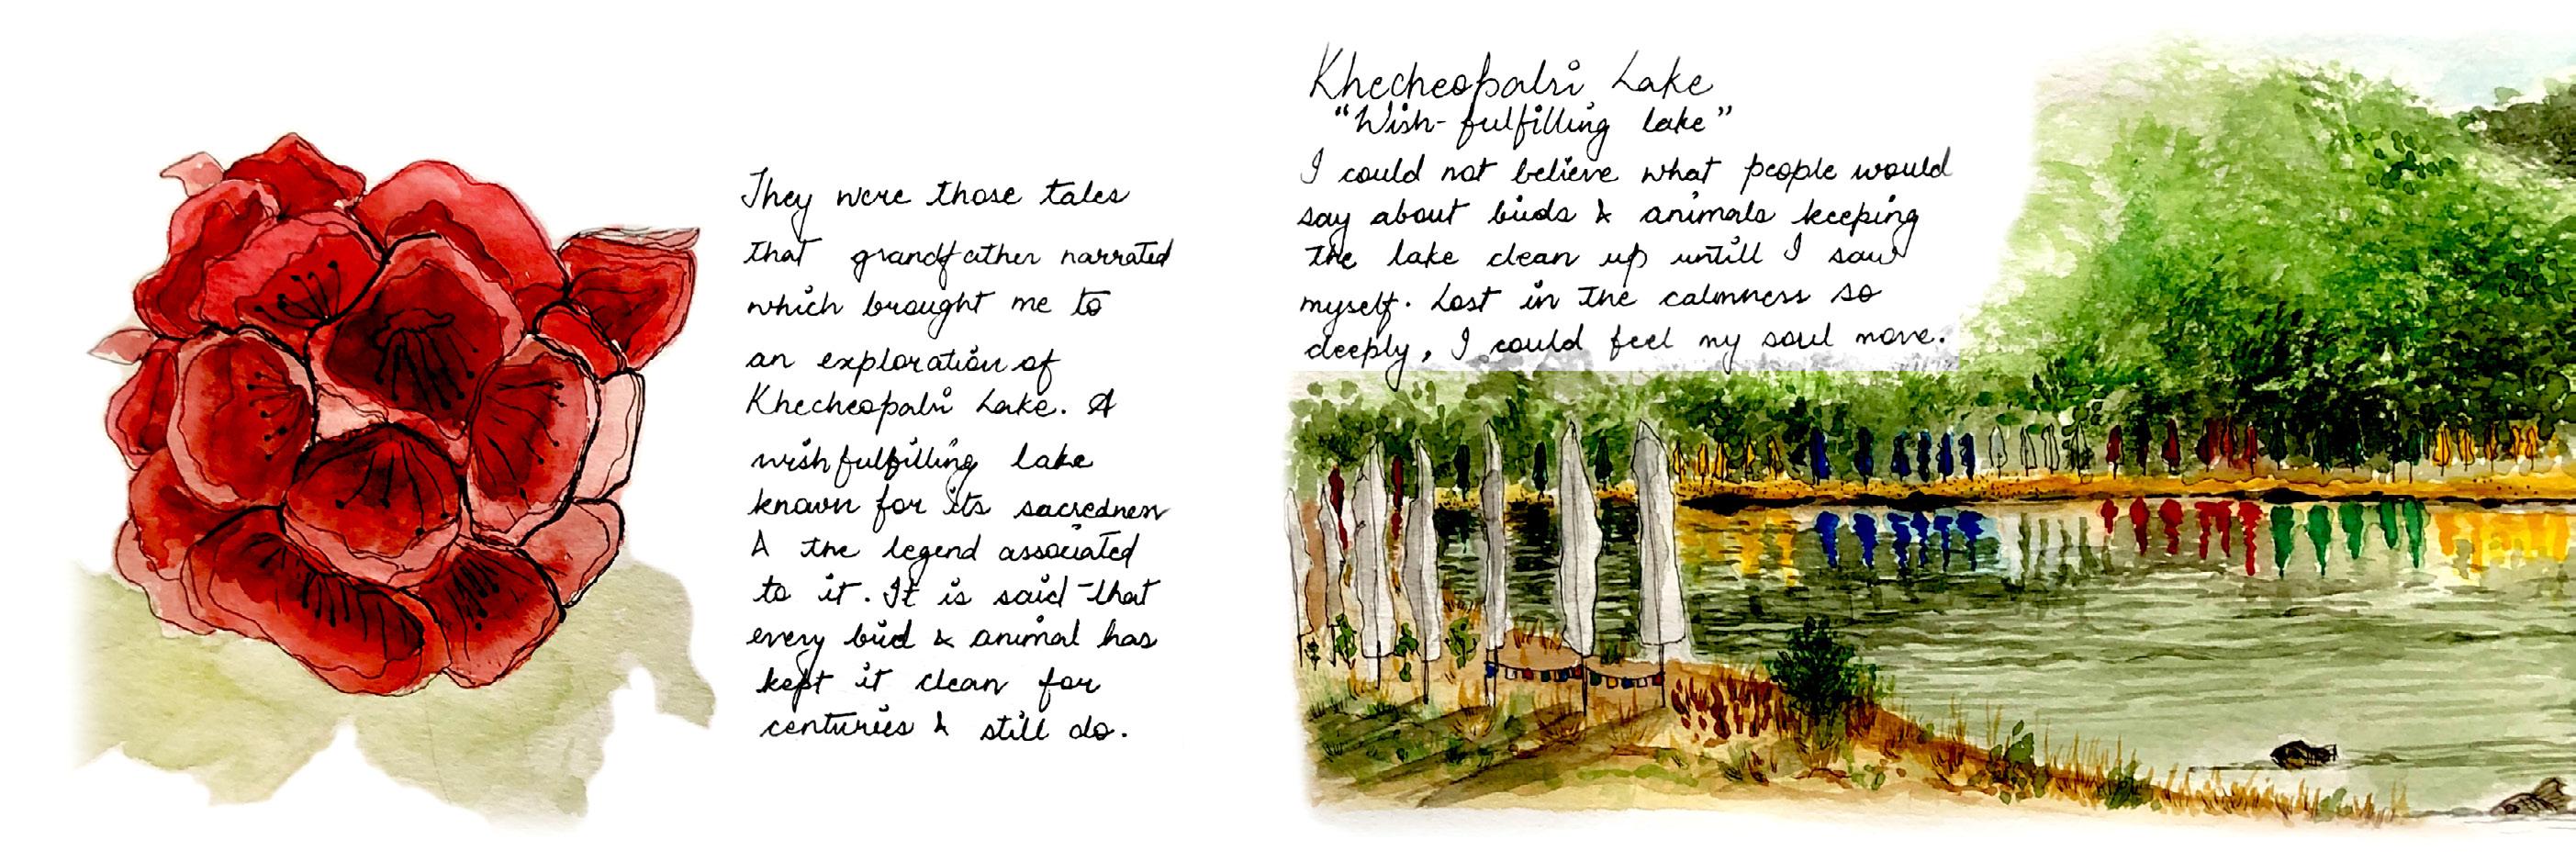 They were those tales
that grandfather narrated
which brought me to
an exploration of
Khecheopalri Lake. A
wishfulfilling lake
known for its sacredness
& the legend associated
to it. It is said that
every bird & animal has
kept it clean for
centuries & still do.
Khecheopalri Lake
"Wish-fulfilling lake"
I could not believe what people would
say about birds & animals keeping
the lake clean up untill I saw
myself. Lost in the calmness so
deeply, I could feel my soul move.